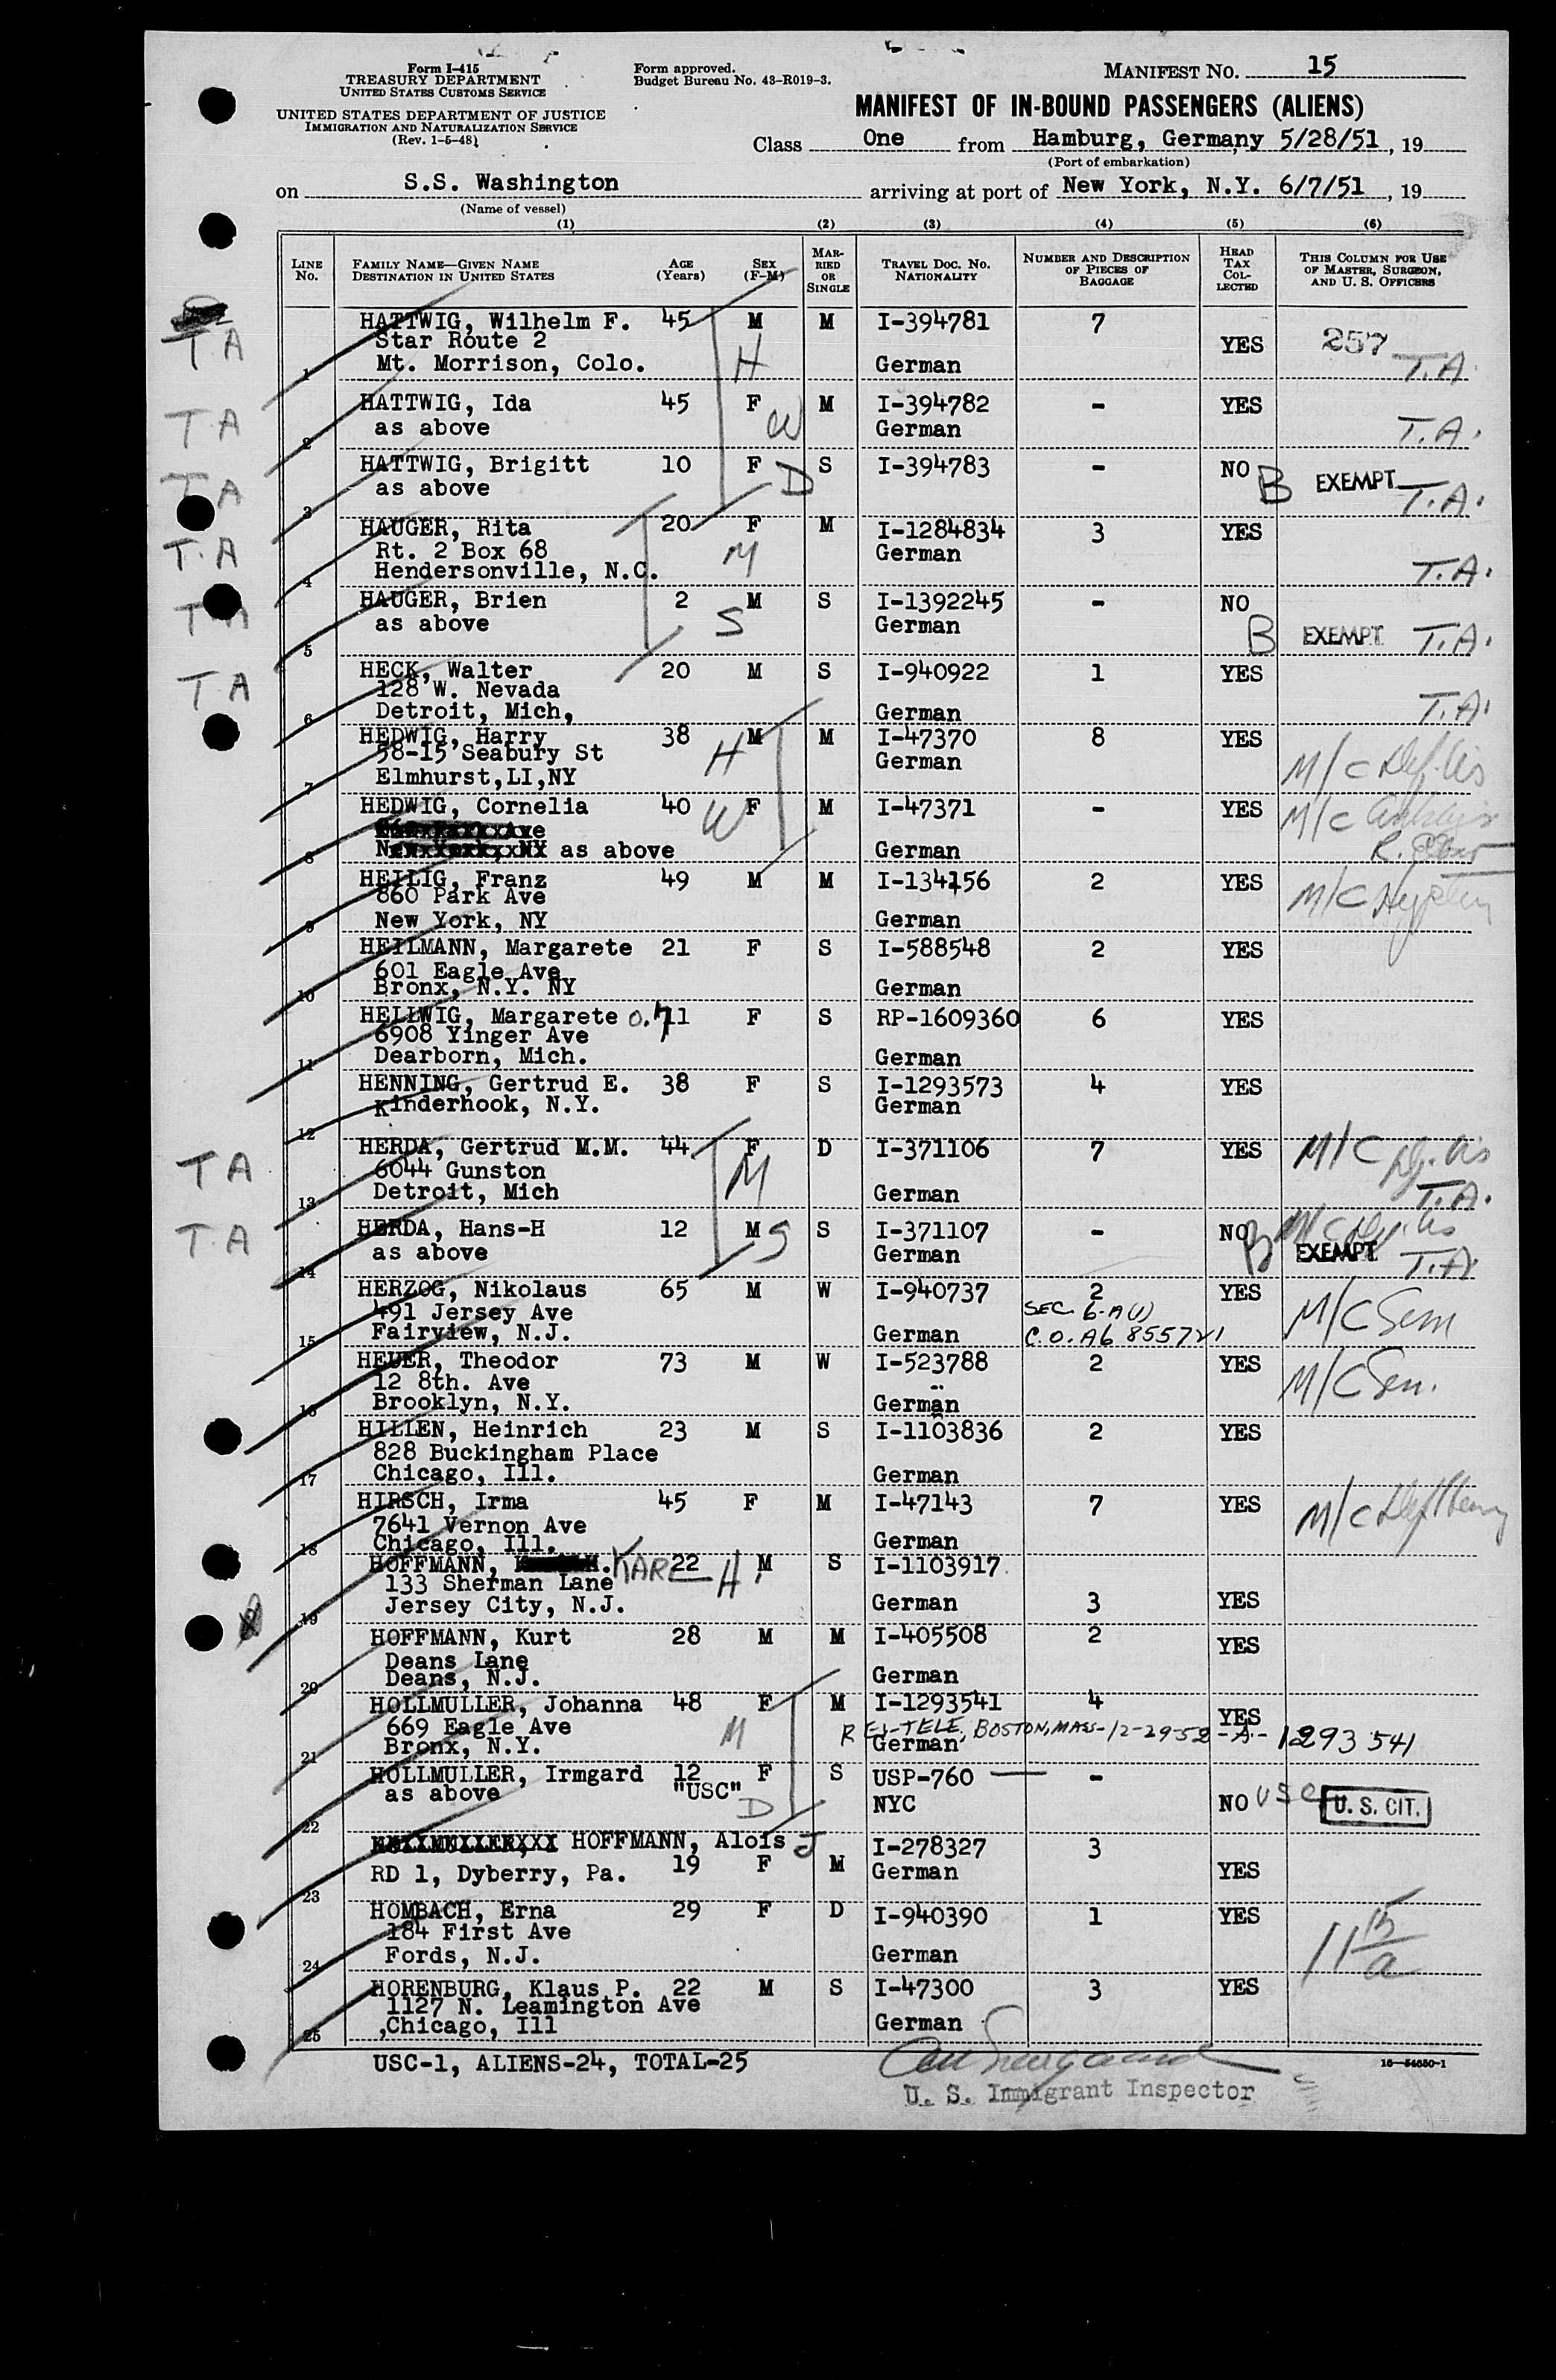 Form I-415
TREASURY DEPARTMENT
UNITED STATES CUSTOMS SERVICE
UNITED STATES DEPARTMENT OF JUSTICE
IMMIGRATION AND NATURALIZATION SERVICE
(Rev. 1-5-48)
Form approved.
Budget Bureau No. 43-R019-3.
MANIFEST NO. 15
MANIFEST OF IN-BOUND PASSENGERS (ALIENS)
Class One from Hamburg, Germany 5/28/51, 19
(Port of embarkation)
on S.S. Washington arriving at port of New York, N.Y. 6/7/51, 19
(Name of vessel)
(1) (2) (3) (4) (5) (6)
LINE NO. FAMILY NAME—GIVEN NAME DESTINATION IN UNITED STATES AGE (Years) SEX (F-M) MARRIED OR SINGLE TRAVEL DOC. NO. NATIONALITY NUMBER AND DESCRIPTION OF PIECES OF BAGGAGE HEAD TAX COLLECTED THIS COLUMN FOR USE OF MASTER, SURGEON, AND U. S. OFFICERS
TA 1 HATTWIG, Wilhelm F. 45 M M I-394781 7 YES 257 T.A.
Star Route 2 H
Mt. Morrison, Colo. German
TA 2 HATTWIG, Ida 45 F M I-394782 - YES T.A.
as above W German
TA 3 HATTWIG, Brigitt 10 F D S I-394783 - NO B EXEMPT T.A.
as above
TA 4 HAUGER, Rita 20 F M I-1284834 3 YES T.A.
Rt. 2 Box 68 M German
Hendersonville, N.C.
TA 5 HAUGER, Brien 2 M S I-1392245 - NO
as above S German B EXEMPT T.A.
TA 6 HECK, Walter 20 M S I-940922 1 YES T.A.
128 W. Nevada
Detroit, Mich, German
7 HEDWIG, Harry 38 M M I-47370 8 YES
58-15 Seabury St H German M/C
Elmhurst,LI,NY
8 HEDWIG, Cornelia 40 W F M I-47371 - YES M/C
as above German
9 HEILIG, Franz 49 M M I-134156 2 YES M/C
860 Park Ave
New York, NY German
10 HEILMANN, Margarete 21 F S I-588548 2 YES
601 Eagle Ave
Bronx, N.Y. NY German
11 HELLWIG, Margarete O. 41 F S RP-1609360 6 YES
6908 Yinger Ave
Dearborn, Mich. German
12 HENNING, Gertrud E. 38 F S I-1293573 4 YES
Kinderhook, N.Y. German
TA 13 HERDA, Gertrud M.M. 44 F D I-371106 7 YES M/C
6044 Gunston M
Detroit, Mich German T.A.
TA 14 HERDA, Hans-H 12 M S S I-371107 - NO B M/C
as above German EXEMPT T.A.
15 HERZOG, Nikolaus 65 M W I-940737 2 YES M/C Sem
491 Jersey Ave SEC. 6-A(1)
Fairview, N.J. German C.O. A6 855721
16 HEUER, Theodor 73 M W I-523788 2 YES M/C Sen.
12 8th. Ave
Brooklyn, N.Y. German
17 HILLEN, Heinrich 23 M S I-1103836 2 YES
828 Buckingham Place
Chicago, Ill. German
18 HIRSCH, Irma 45 F M I-47143 7 YES M/C
7641 Vernon Ave
Chicago, Ill. German
19 HOFFMANN, KARL H. 22 M S I-1103917
133 Sherman Lane
Jersey City, N.J. German 3 YES
20 HOFFMANN, Kurt 28 M M I-405508 2 YES
Deans Lane
Deans, N.J. German
21 HOLLMULLER, Johanna 48 F M I-1293541 4 YES
669 Eagle Ave M REL-TELE, BOSTON, MASS-12-29-52-A-1293 541
Bronx, N.Y. German
22 HOLLMULLER, Irmgard 12 F S USP-760 -
as above "USC" D NYC NO USC U. S. CIT.
23 HOFFMANN, Alois J I-278327 3
RD 1, Dyberry, Pa. 19 F M German YES
24 HOMBACH, Erna 29 F D I-940390 1 YES
184 First Ave
Fords, N.J. German
25 HORENBURG, Klaus P. 22 M S I-47300 3 YES
1127 N. Leamington Ave
,Chicago, Ill German
USC-1, ALIENS-24, TOTAL-25
U. S. Immigrant Inspector
16—54650-1